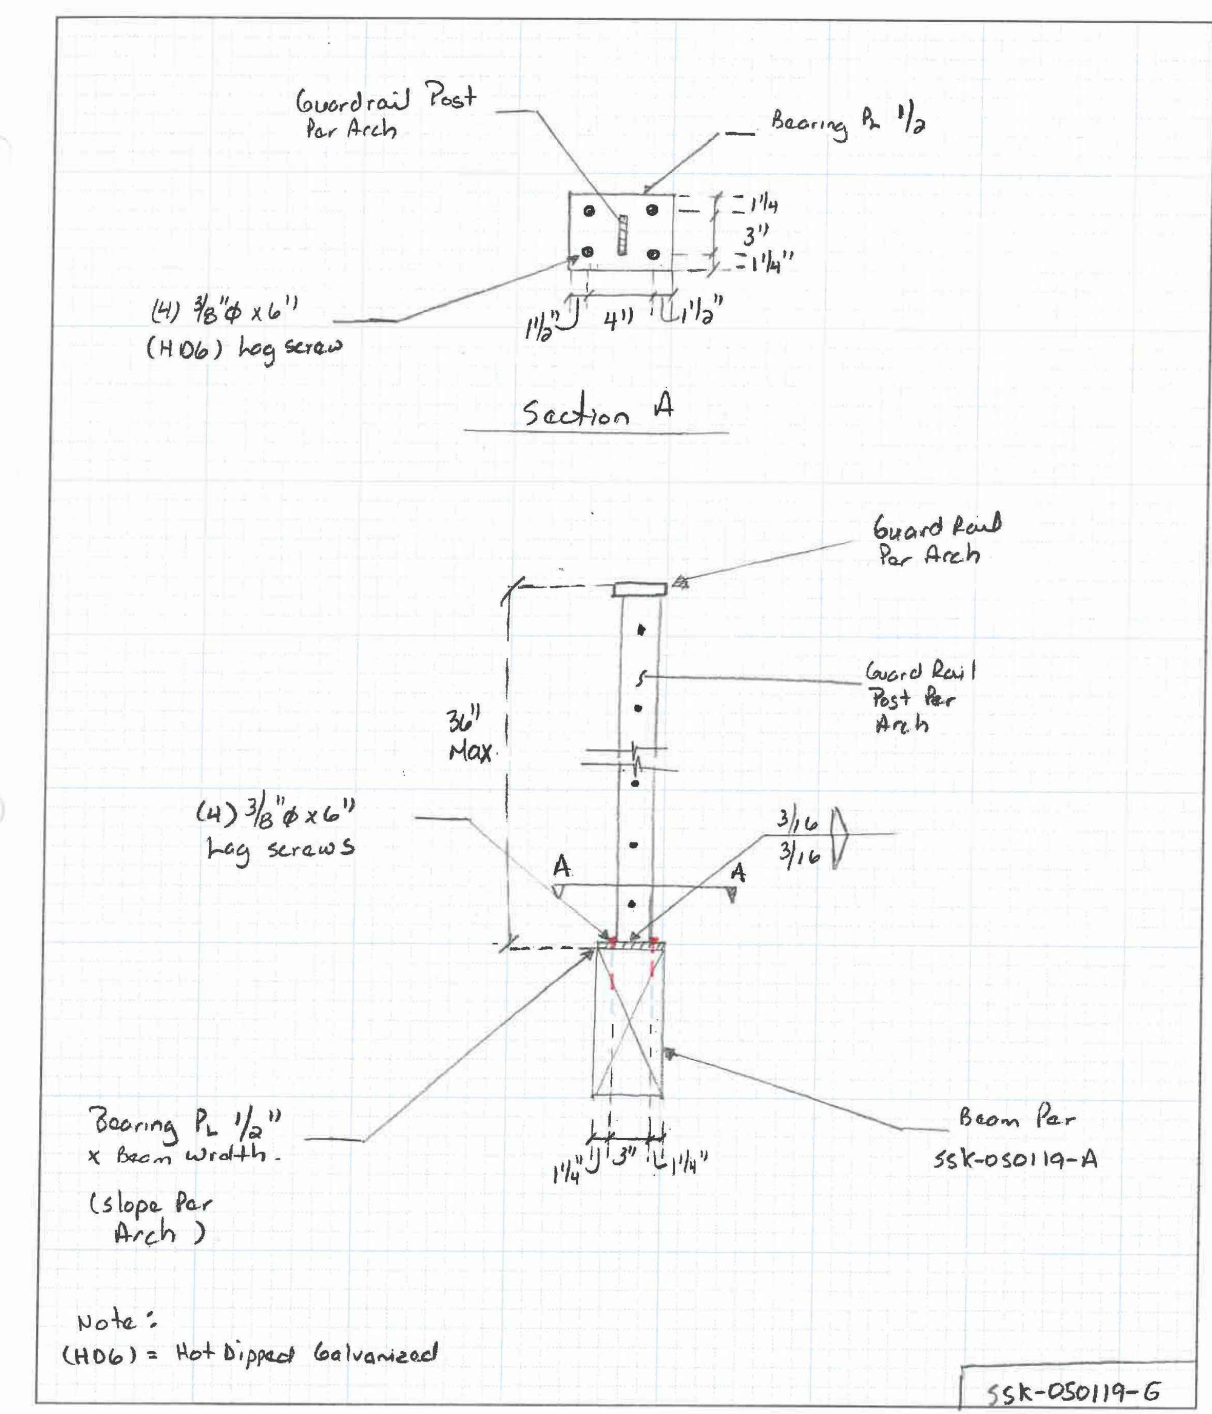 Guardrail Post
Per Arch
Bearing PL 1/2
1 1/4
3"
1 1/4"
(4) 3/8"ϕ x 6"
(HDG) Lag screw
1 1/2" 4" 1 1/2"
Section A
Guard Rail
Per Arch
Guard Rail
Post Per
Arch
36"
Max.
(4) 3/8"ϕ x 6"
Lag screws
3/16
3/16
A A
Bearing PL 1/2"
x Beam Width.
(Slope Per
Arch )
1 1/4" 3" 1 1/4"
Beam Per
SSK-050119-A
Note:
(HDG) = Hot Dipped Galvanized
SSK-050119-G